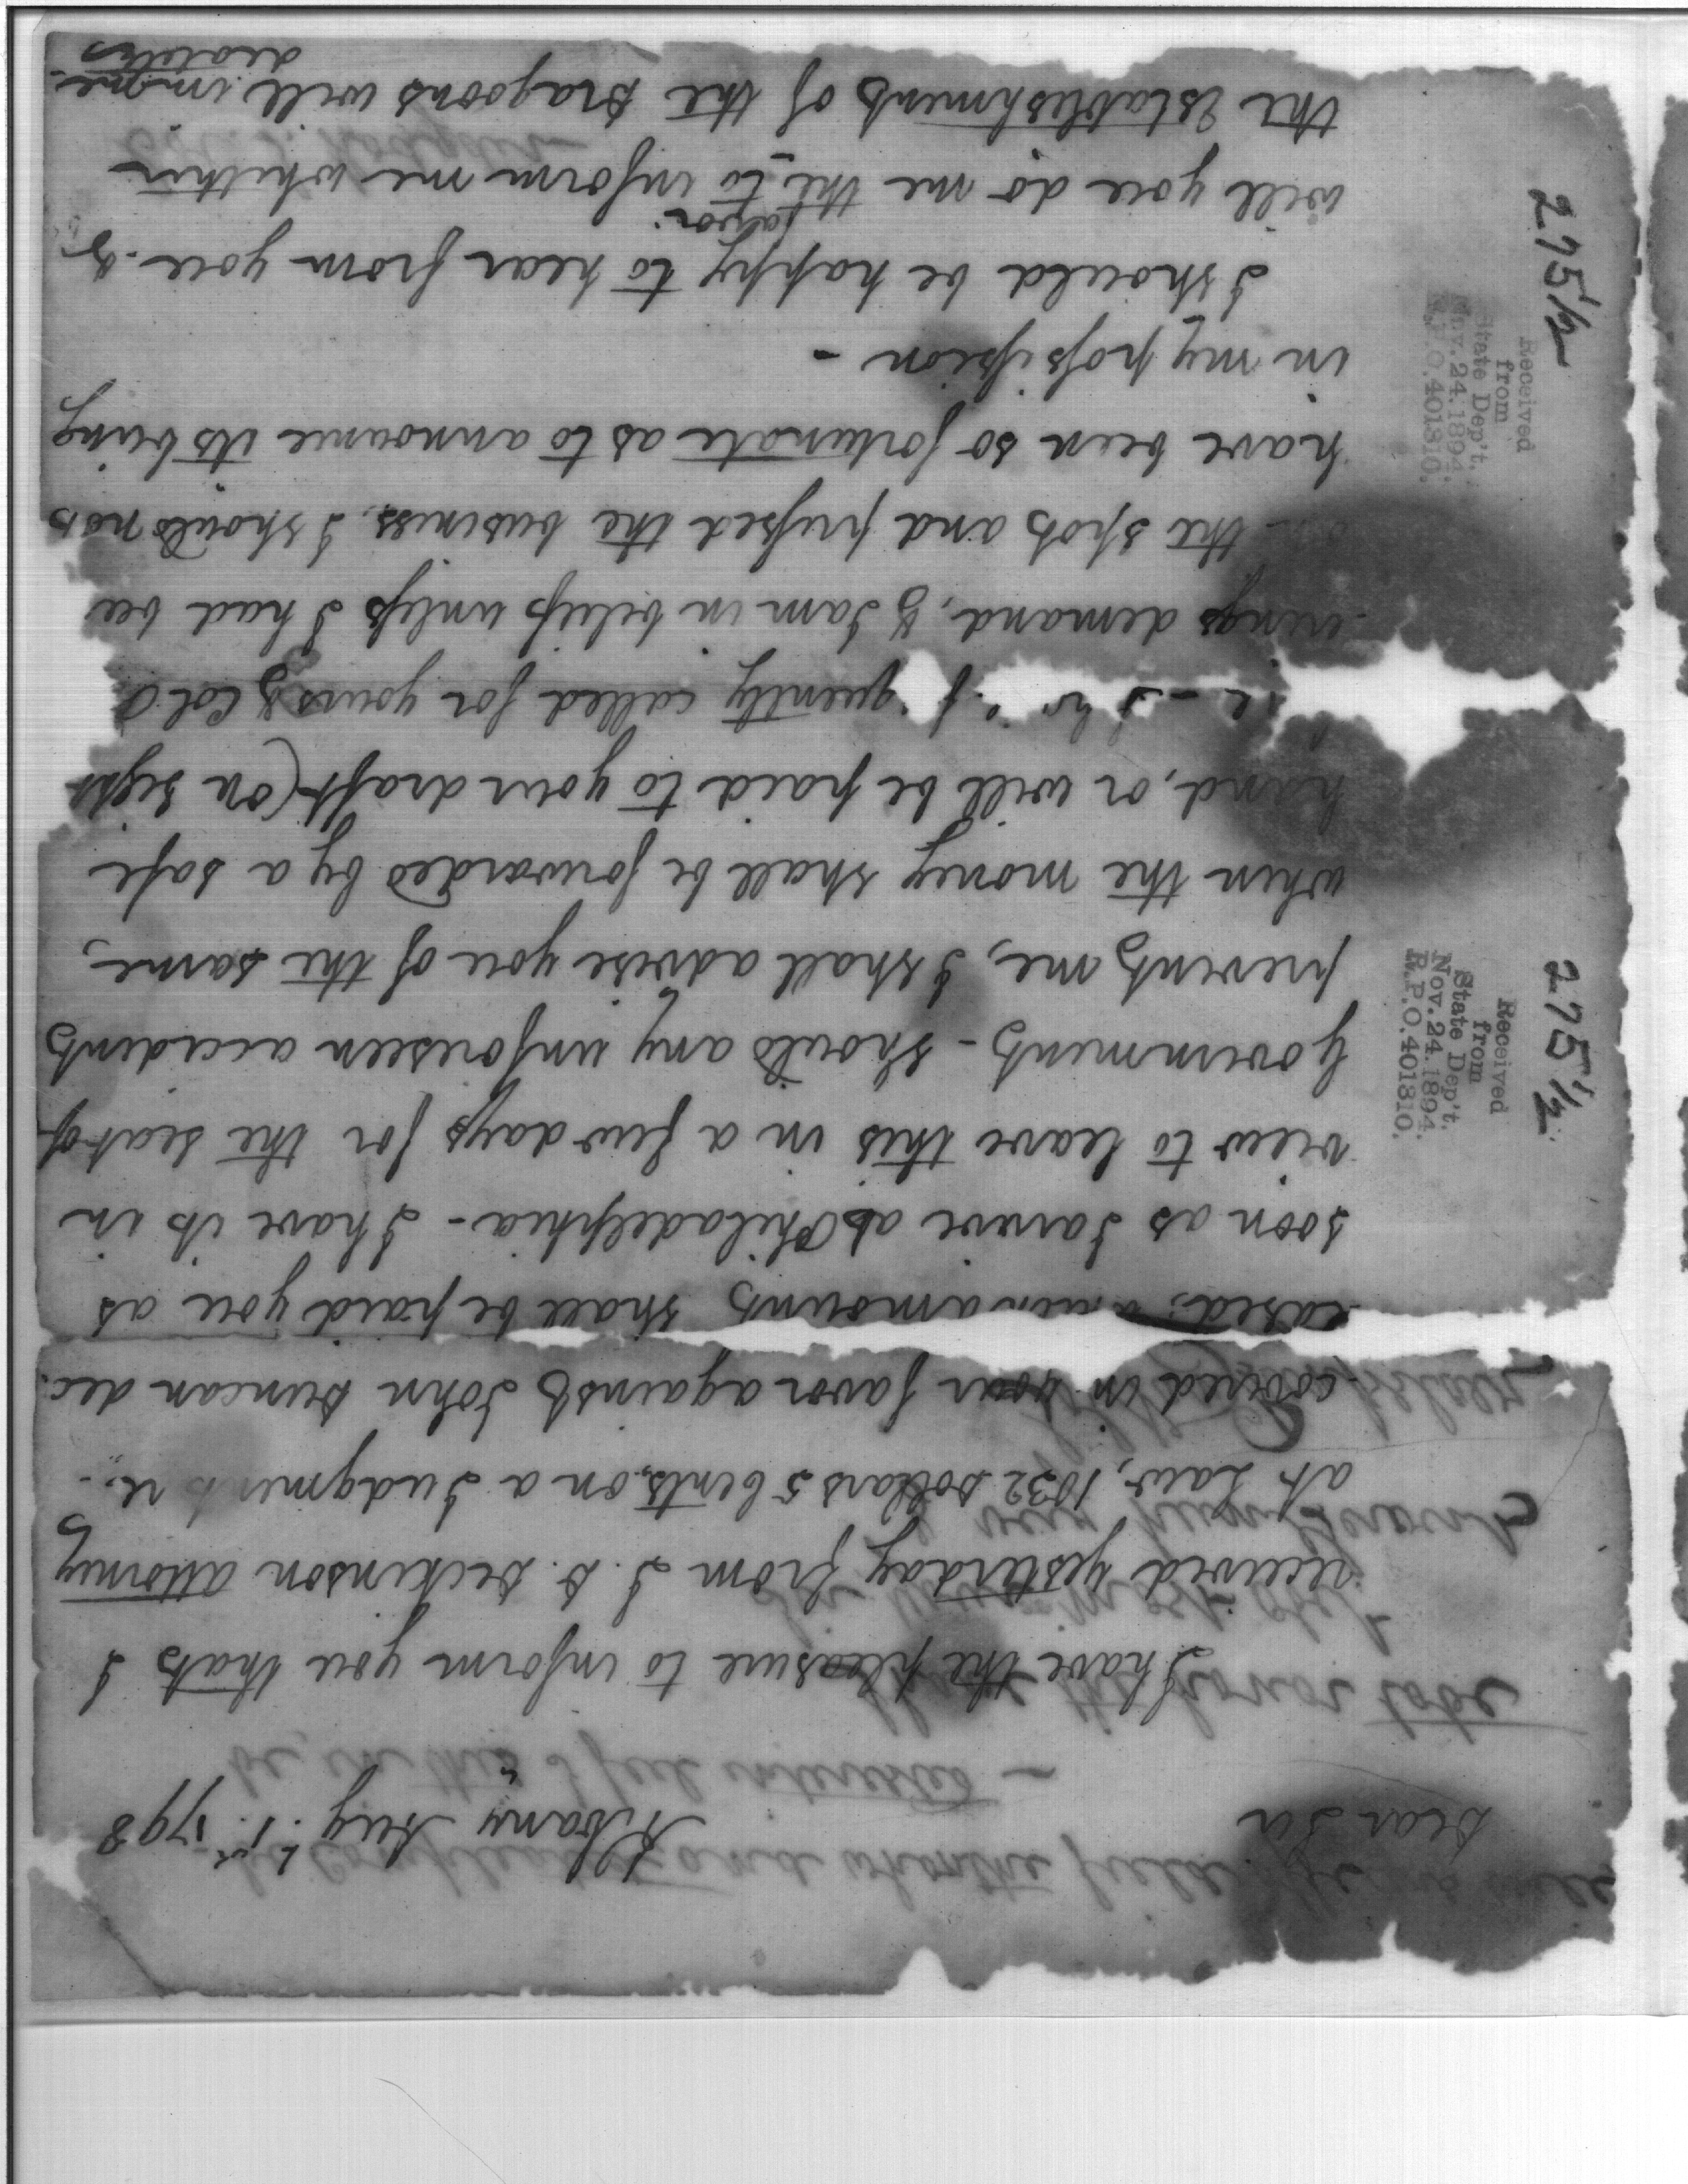 Albany Aug. 1st 1798
Dear Sir
I have the pleasure to inform you that I
received yesterday from I. D. Dickinson attorney
at Law, 1032 Dollars 5 Cents, on a Judgment re-
-covered in your favor against John Duncan dec-
-eased. amount shall be paid you as
soon as I arive at Philadelphia - I have it in
view to leave this in a few days for the seat of
Government - should any unforeseen accident
prevent me, I shall advise you of the same,
when the money shall be forwarded by a safe
hand, or will be paid to your draft (on sight
quently called for yours & Col. O
demand, & I am in belief unless I had be
on the spot and pressed the business, I should not
have been so fortunate as to announce its being
in my possession -
I should be happy to hear from you - &
will you do me the favor to inform me whether
the Establishment of the Dragoons will imme-
diately
275 1/2
Received
from
State Dep't.
Nov. 24. 1894.
R.P.O. 401810.
275 1/2
Received
from
State Dep't.
Nov. 24. 1894.
R.P.O. 401810.